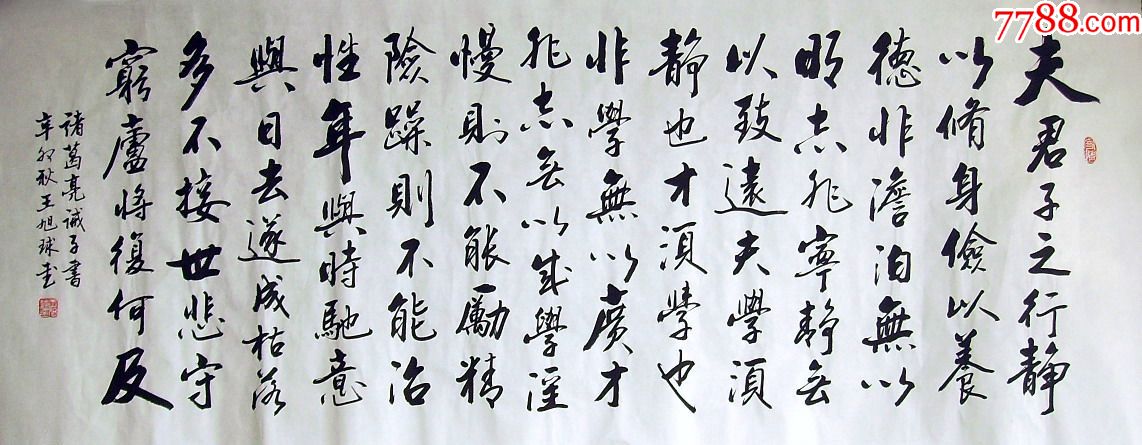 7788.com
夫君子之行靜
以脩身儉以養
德非澹泊無以
明志非寧靜無
以致遠夫學須
靜也才須學也
非學無以廣才
非志無以成學淫
慢則不能勵精
險躁則不能治
性年與時馳意
與日去遂成枯落
多不接世悲守
窮廬將復何及
諸葛亮誡子書
辛卯秋王旭球書